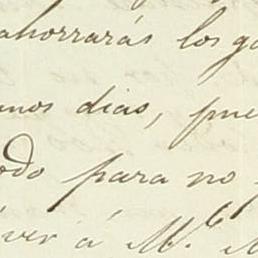 ahorrarás los ga
unos dias, pue
odo para no
iver á M.e